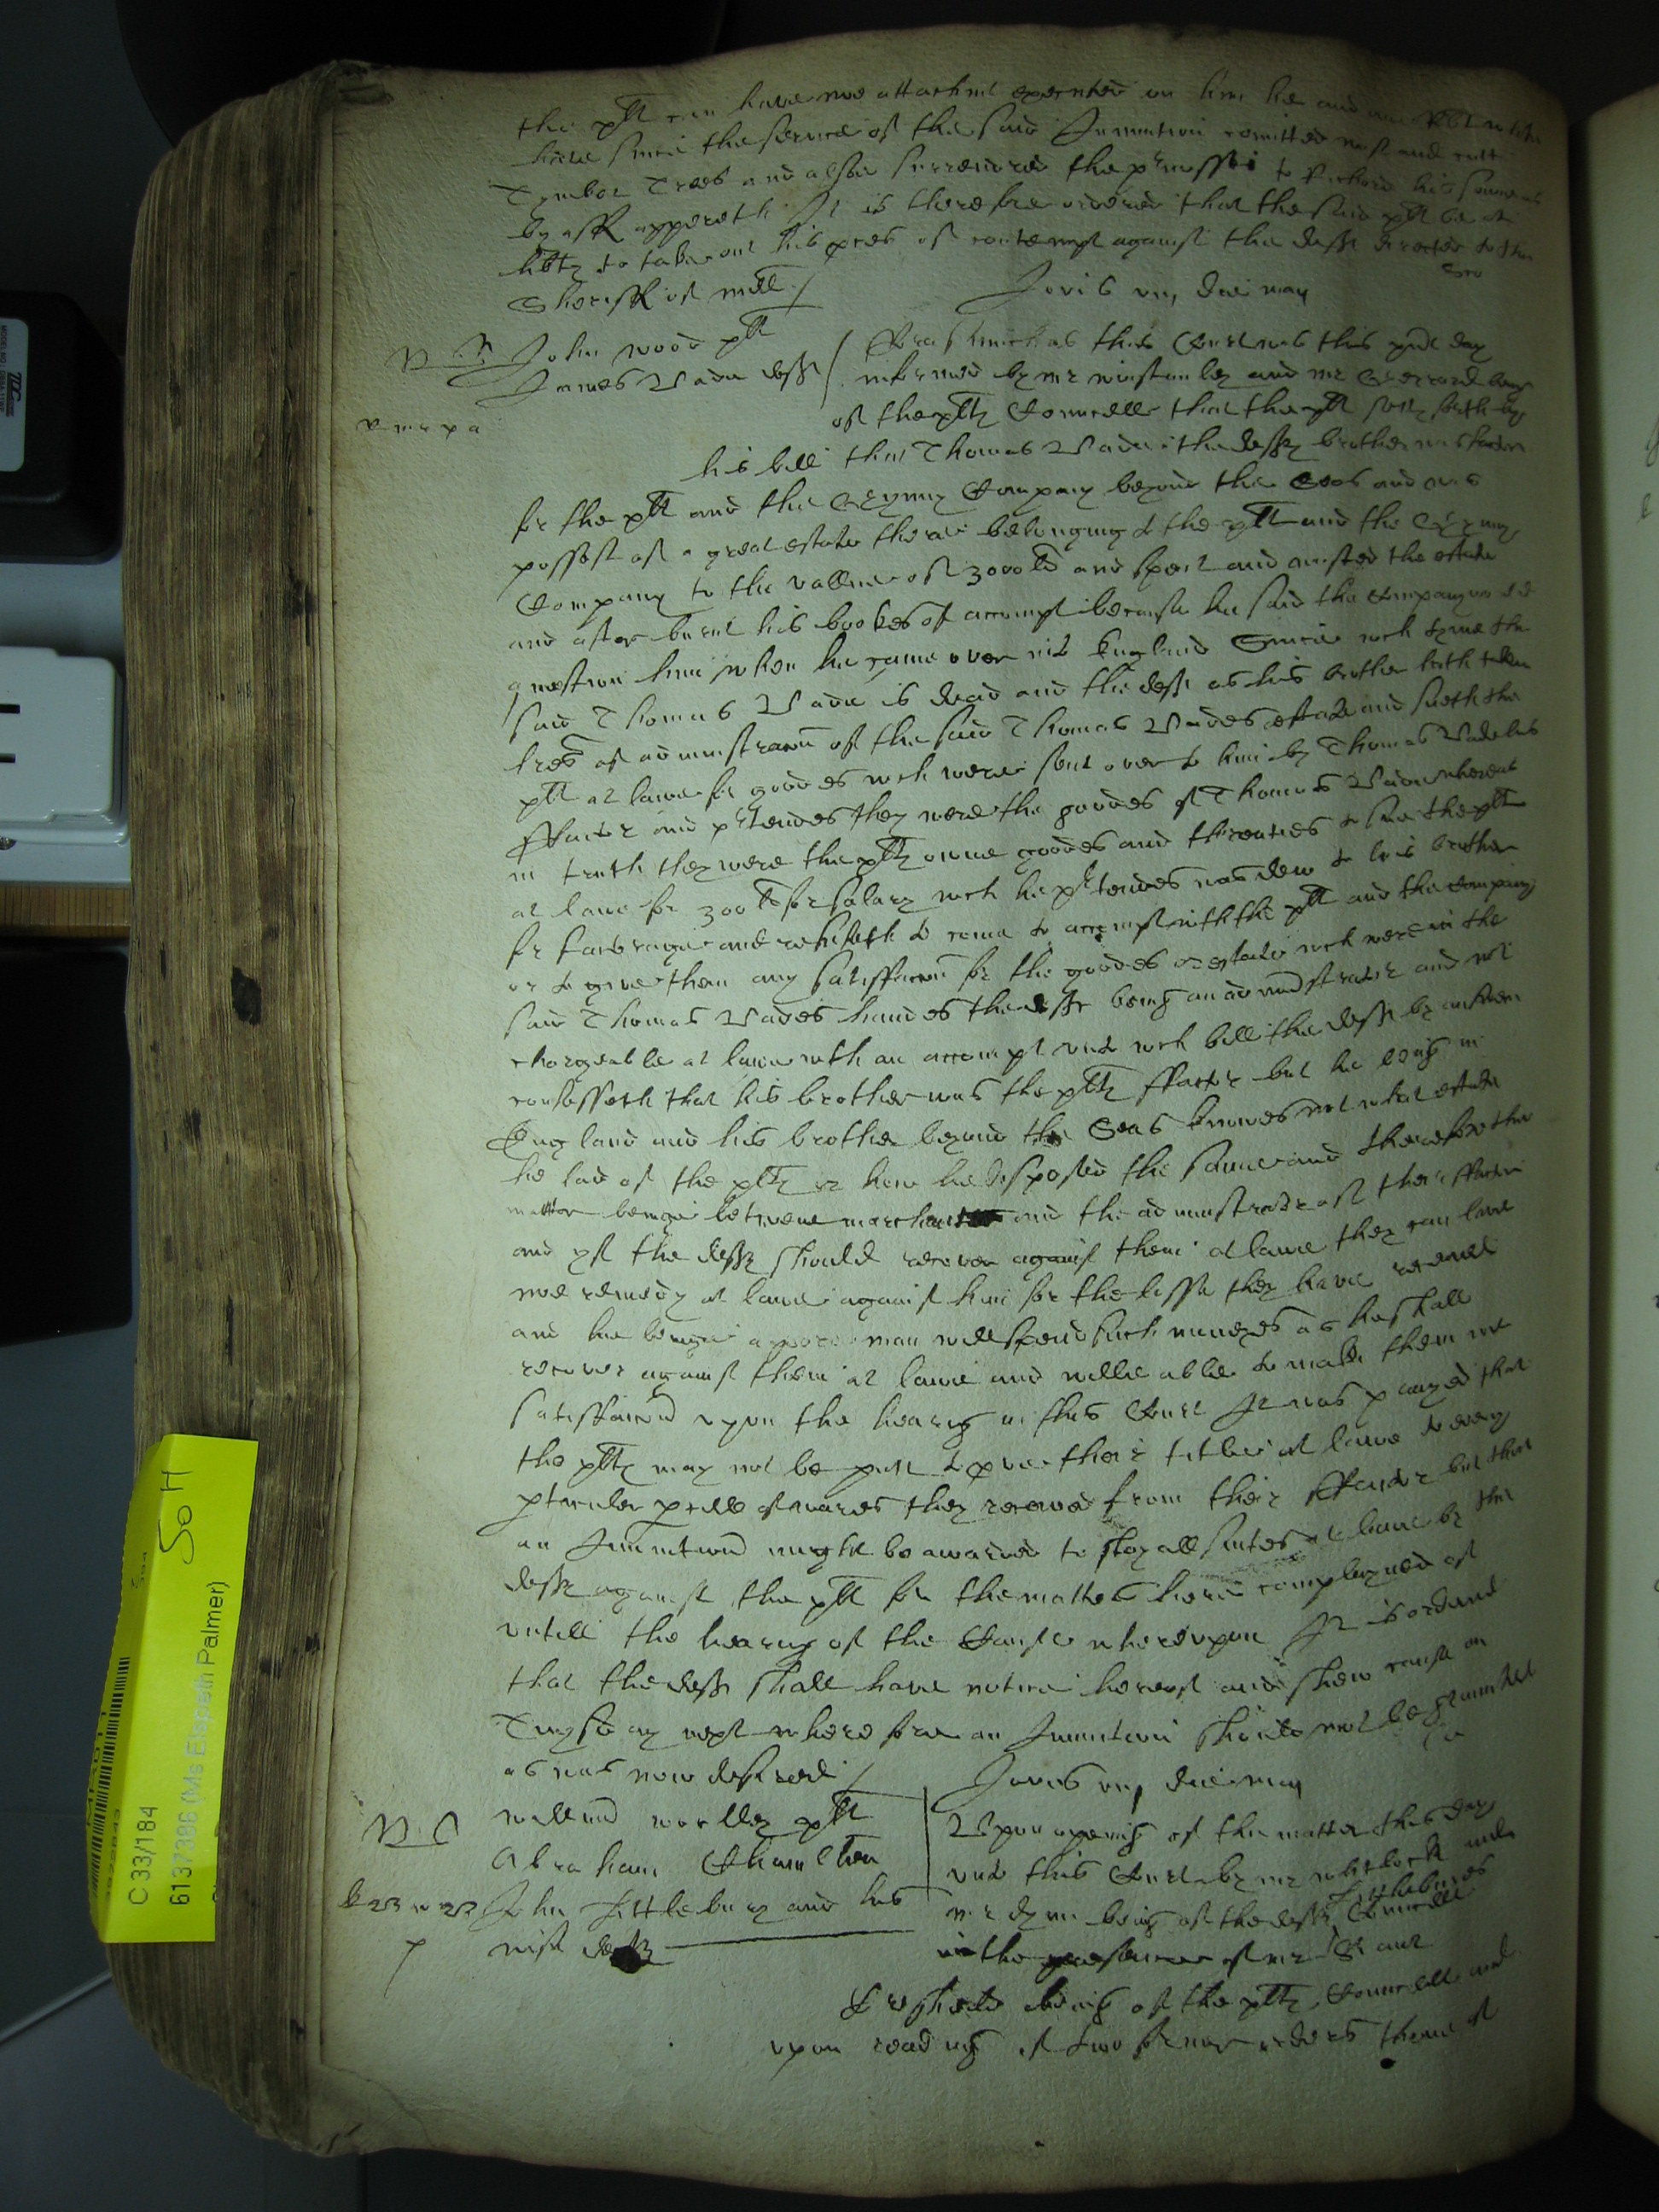 the plt can have noe attachmt executed on him he and
have since the service of the said Iniunction comitted wast and cutt
Tymber Trees and alsoe surrendred the prmisses to Richard his sonne as
by aff appereth It is therefore ordered that the said plt be at
libty to take out his pces of contempt against the deft directed to the
Sheriff of midd /
Jovis viij die may
John wood plt
James Vade deft
Forasmuch as this Court was this pnt day
informed by mr winstanley and mr Gerrard being
of the plts Councell that the plt setts forth by
his bill that Thomas Vade the defts brother was factor
for the plt and the Gynny Company beyond the Seas and was
possest of a great estate there belonging to the plt and the Gynny
Company to the vallue of 3000li and spent and wasted the estate
and after burnt his bookes of accompt because he said the Company
question him when he came over into England Since wch tyme the
said Thomas Vade is dead and the deft as his brother hath taken
lres of administracon of the said Thomas Vades estate and sueth the
plt at lawe for goodes wch were sent over to him by Thomas Vade his
ffactor and prtendes they were the goodes of Thomas Vade whereas
in truth they were the plts owne goodes and threatnes to sue the plt
at lawe for 300li for salary wch he prtendes was dew to his brother
for factorage and refuseth to come to accompt with the plt and the company
or to give them any satisfaccon for the goodes or estate wch were in the
said Thomas Vades handes the deft being an administrator and not
chargeable at lawe with an accompt unto wch bill the deft by answere
confesseth that his brother was the plts ffactor but he being in
England and his brother beyond the Seas knowes not what estate
he had of the plts or how he disposed the same and therefore the
matter beinge betweene marchants and the administrator of their ffactor
and yf the deft should recover against them at lawe they can have
noe remedy at lawe against him for the losse they have receaved
and hee beinge a poore man will spend such moneyes as he shall
recover against them at lawe and wilbe able to make them noe
satisfaccon upon the hearing in this Court It was prayed that
the plts may not be putt to prove their titles at lawe to every
pticuler pcell of wares they receaved from their ffactor but that
an Iniunction might be awarded to stay all suites at lawe by the
deft against the plt for the matters herein complayned of
untill the hearing of the Cause whereupon It is ordered
that the deft shall have notice hereof and shew cause on
Tuysday next wherefore an Iniunction should not be graunted
as was now desired /
Jovis viij die may
willm worlley plt
Abraham Chamelton
John Littlebury and his
wife defts
Upon opening of the matter this day
unto this Court by mr whitlock and
mr dym being of the defts Littleburies Councell
in the presence of mr St
being of the plts Councell and
upon reading of two former orders thone of
C 33/184
6137386 (Ms Elspeth Palmer)
So H